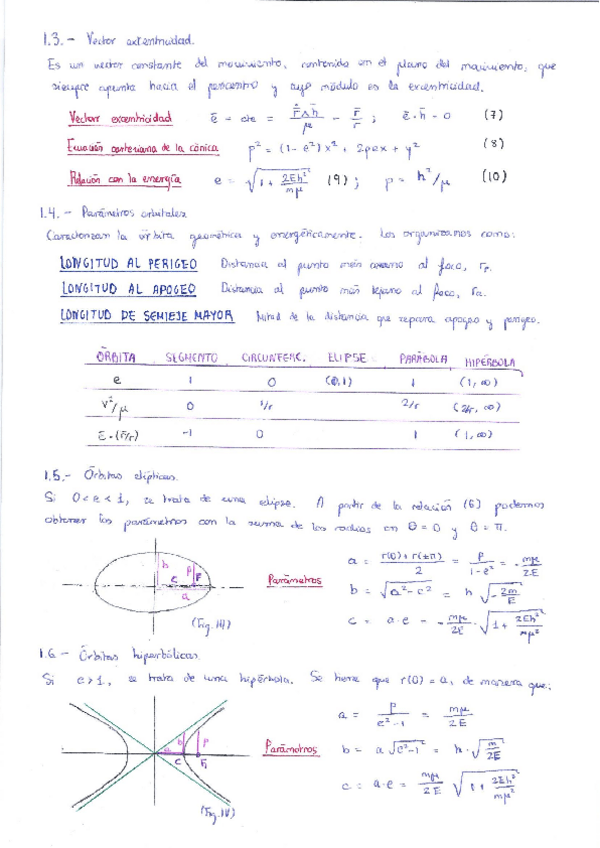 1.3.- Vector excentricidad.
Es un vector constante del movimiento, contenido en el plano del movimiento, que
siempre apunta hacia el pericentro y cuyo módulo es la excentricidad.
Vector excentricidad ē = cte = (ṙ̄ ∧ h̄)/μ - r̄/r ; ē·h̄ = 0 (7)
Ecuación cartesiana de la cónica p² = (1-e²)x² + 2pex + y² (8)
Relación con la energía e = √(1 + 2Eh²/mμ²) (9) ; p = h²/μ (10)
1.4.- Parámetros orbitales
Caracterizan la órbita geométrica y energéticamente. Los organizamos como:
LONGITUD AL PERIGEO Distancia al punto más cercano al foco, rₚ.
LONGITUD AL APOGEO Distancia al punto más lejano al foco, rₐ.
LONGITUD DE SEMIEJE MAYOR Mitad de la distancia que separa apogeo y perigeo.
ÓRBITA SEGMENTO CIRCUNFERC. ELIPSE PARÁBOLA HIPÉRBOLA
e 1 0 (0,1) 1 (1, ∞)
v²/μ 0 1/r 2/r (2/r, ∞)
ē·(r̄/r) -1 0 1 (1, ∞)
1.5.- Órbitas elípticas.
Si 0<e<1, se trata de una elipse. A partir de la relación (6) podemos
obtener los parámetros con la suma de los radios en θ=0 y θ=π.
b c p F a
(Fig. III)
Parámetros
a = (r(0)+r(±π))/2 = p/(1-e²) = -mμ/2E
b = √(a²-c²) = h √(-2m/E)
c = a·e = -mμ/2E · √(1 + 2Eh²/mμ²)
1.6.- Órbitas hiperbólicas.
Si e>1, se trata de una hipérbola. Se tiene que r(0) = a, de manera que:
b p c F₁
(Fig. IV)
Parámetros
a = p/(e²-1) = mμ/2E
b = a √(e²-1) = h·√(m/2E)
c = a·e = mμ/2E √(1 + 2Eh²/mμ²)